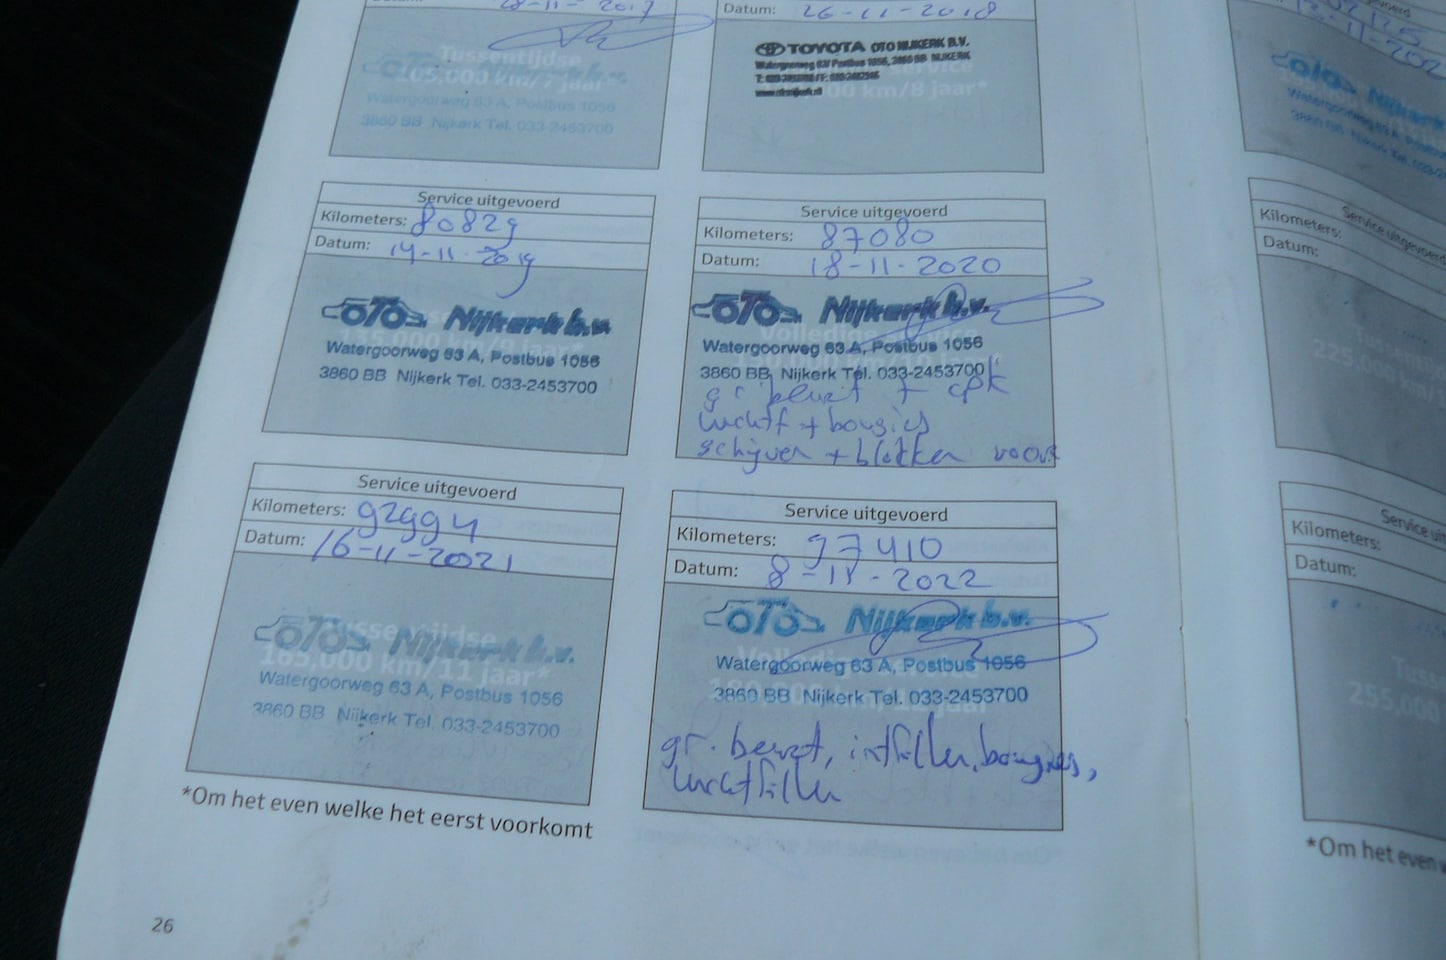 Datum: 28-11-2017
Tussentijdse
105,000 km/7 jaar*
Watergoorweg 63 A, Postbus 1056
3860 BB Nijkerk Tel. 033-2453700
Datum: 26-11-2018
TOYOTA OTO NIJKERK B.V.
Watergoorweg 63/ Postbus 1056, 3860 BB NIJKERK
km/8 jaar*
Service uitgevoerd
Kilometers: 80829
Datum: 14-11-2019
OTO Nijkerk b.v.
Watergoorweg 63 A, Postbus 1056
3860 BB Nijkerk Tel. 033-2453700
Service uitgevoerd
Kilometers: 87080
Datum: 18-11-2020
OTO Nijkerk b.v.
Volledige service
Watergoorweg 63 A, Postbus 1056
3860 BB Nijkerk Tel. 033-2453700
gr beurt + apk
luchtf + bougies
schijven + blokken voor
Service uitgevoerd
Kilometers: 92994
Datum: 16-11-2021
OTO Nijkerk b.v.
Tussentijdse
165,000 km/11 jaar*
Watergoorweg 63 A, Postbus 1056
3860 BB Nijkerk Tel. 033-2453700
Service uitgevoerd
Kilometers: 97410
Datum: 8-11-2022
OTO Nijkerk b.v.
Watergoorweg 63 A, Postbus 1056
3860 BB Nijkerk Tel. 033-2453700
gr. beurt, intfilter, bougies,
luchtfilter
*Om het even welke het eerst voorkomt
26
OTO Nijkerk
Watergoorweg 63 A,
3860 BB Nijkerk Tel.
Service uitgevoerd
Kilometers:
Datum:
225,000 km/
Service
Kilometers:
Datum:
255,000
*Om het even